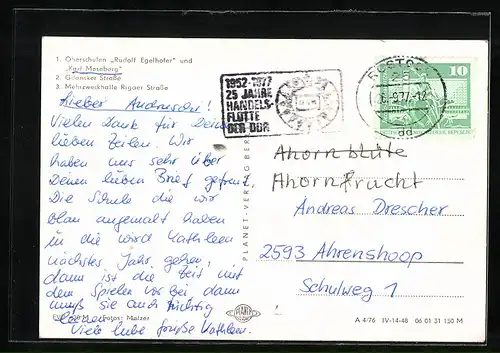 1. Oberschulen „Rudolf Egelhofer" und
„Karl Meseberg"
2. Gdansker Straße
3. Mehrzweckhalle Rigaer Straße
Lieber Andreas!
Vielen Dank für Deine
lieben Zeilen. Wir
haben uns sehr über
Deinen lieben Brief gefreut.
Die Schule die wir
blau angemalt haben
in die wird Kathleen
nächstes Jahr gehen,
dann ist die Zeit mit
dem Spielen vorbei dann
muß sie auch tüchtig
lernen.
Viele liebe Grüße Kathleen.
Fotos: Melzer
PLANET-VERLAG BER
1952-1977
25 JAHRE
HANDELS-
FLOTTE
DER DDR
ROSTO
-9.77-12
10
Ahornblüte
Ahornfrucht
Andreas Drescher
2593 Ahrenshoop
Schulweg 1
A 4/76 IV-14-48 06 01 31 150 M